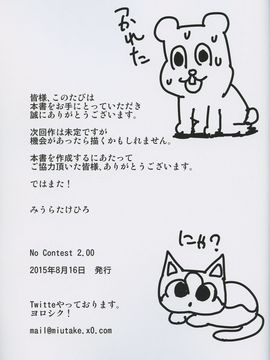 つかれた
皆様、このたびは
本書をお手にとっていただき
誠にありがとうございます。
次回作は未定ですが
機会があったら描くかもしれません。
本書を作成するにあたって
ご協力頂いた皆様、ありがとうございます。
ではまた！
みうらたけひろ
にゃ?
No Contest 2,00
2015年8月16日　発行
Twitteやっております。
ヨロシク！
mail@miutake.x0.com